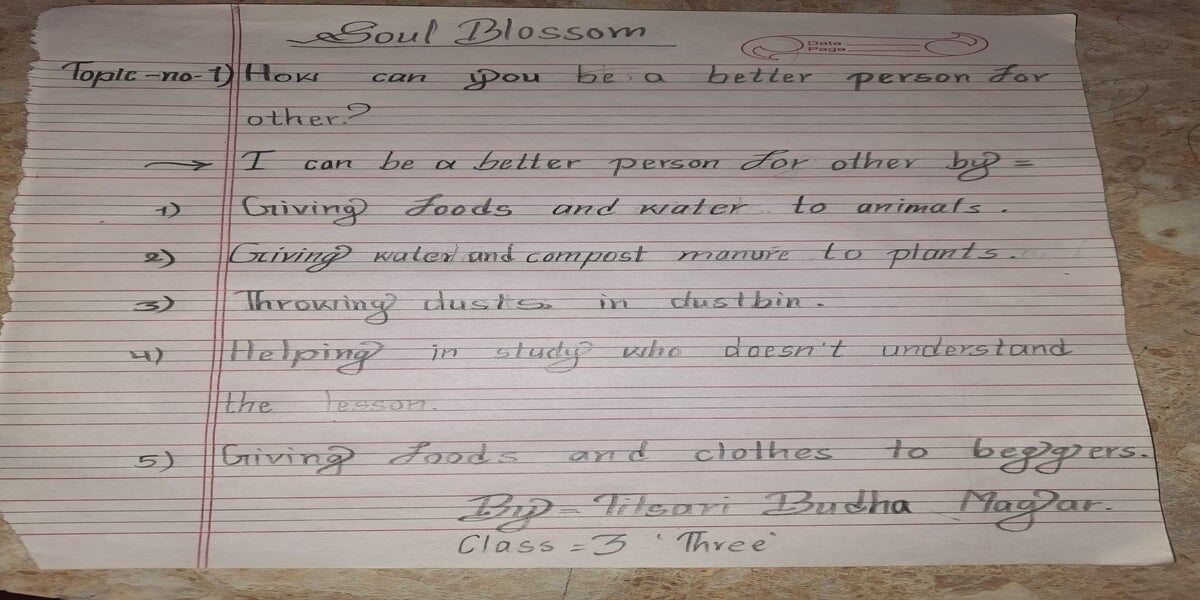 Soul Blossom
Date
Page
Topic-no-1) How can you be a better person for
other?
→ I can be a better person for other by =
1) Giving foods and water to animals.
2) Giving water and compost manure to plants.
3) Throwing dusts in dustbin.
4) Helping in study who doesn't understand
the lesson.
5) Giving foods and clothes to beggers.
By = Tilsari Budha Magar.
Class = 3 'Three'